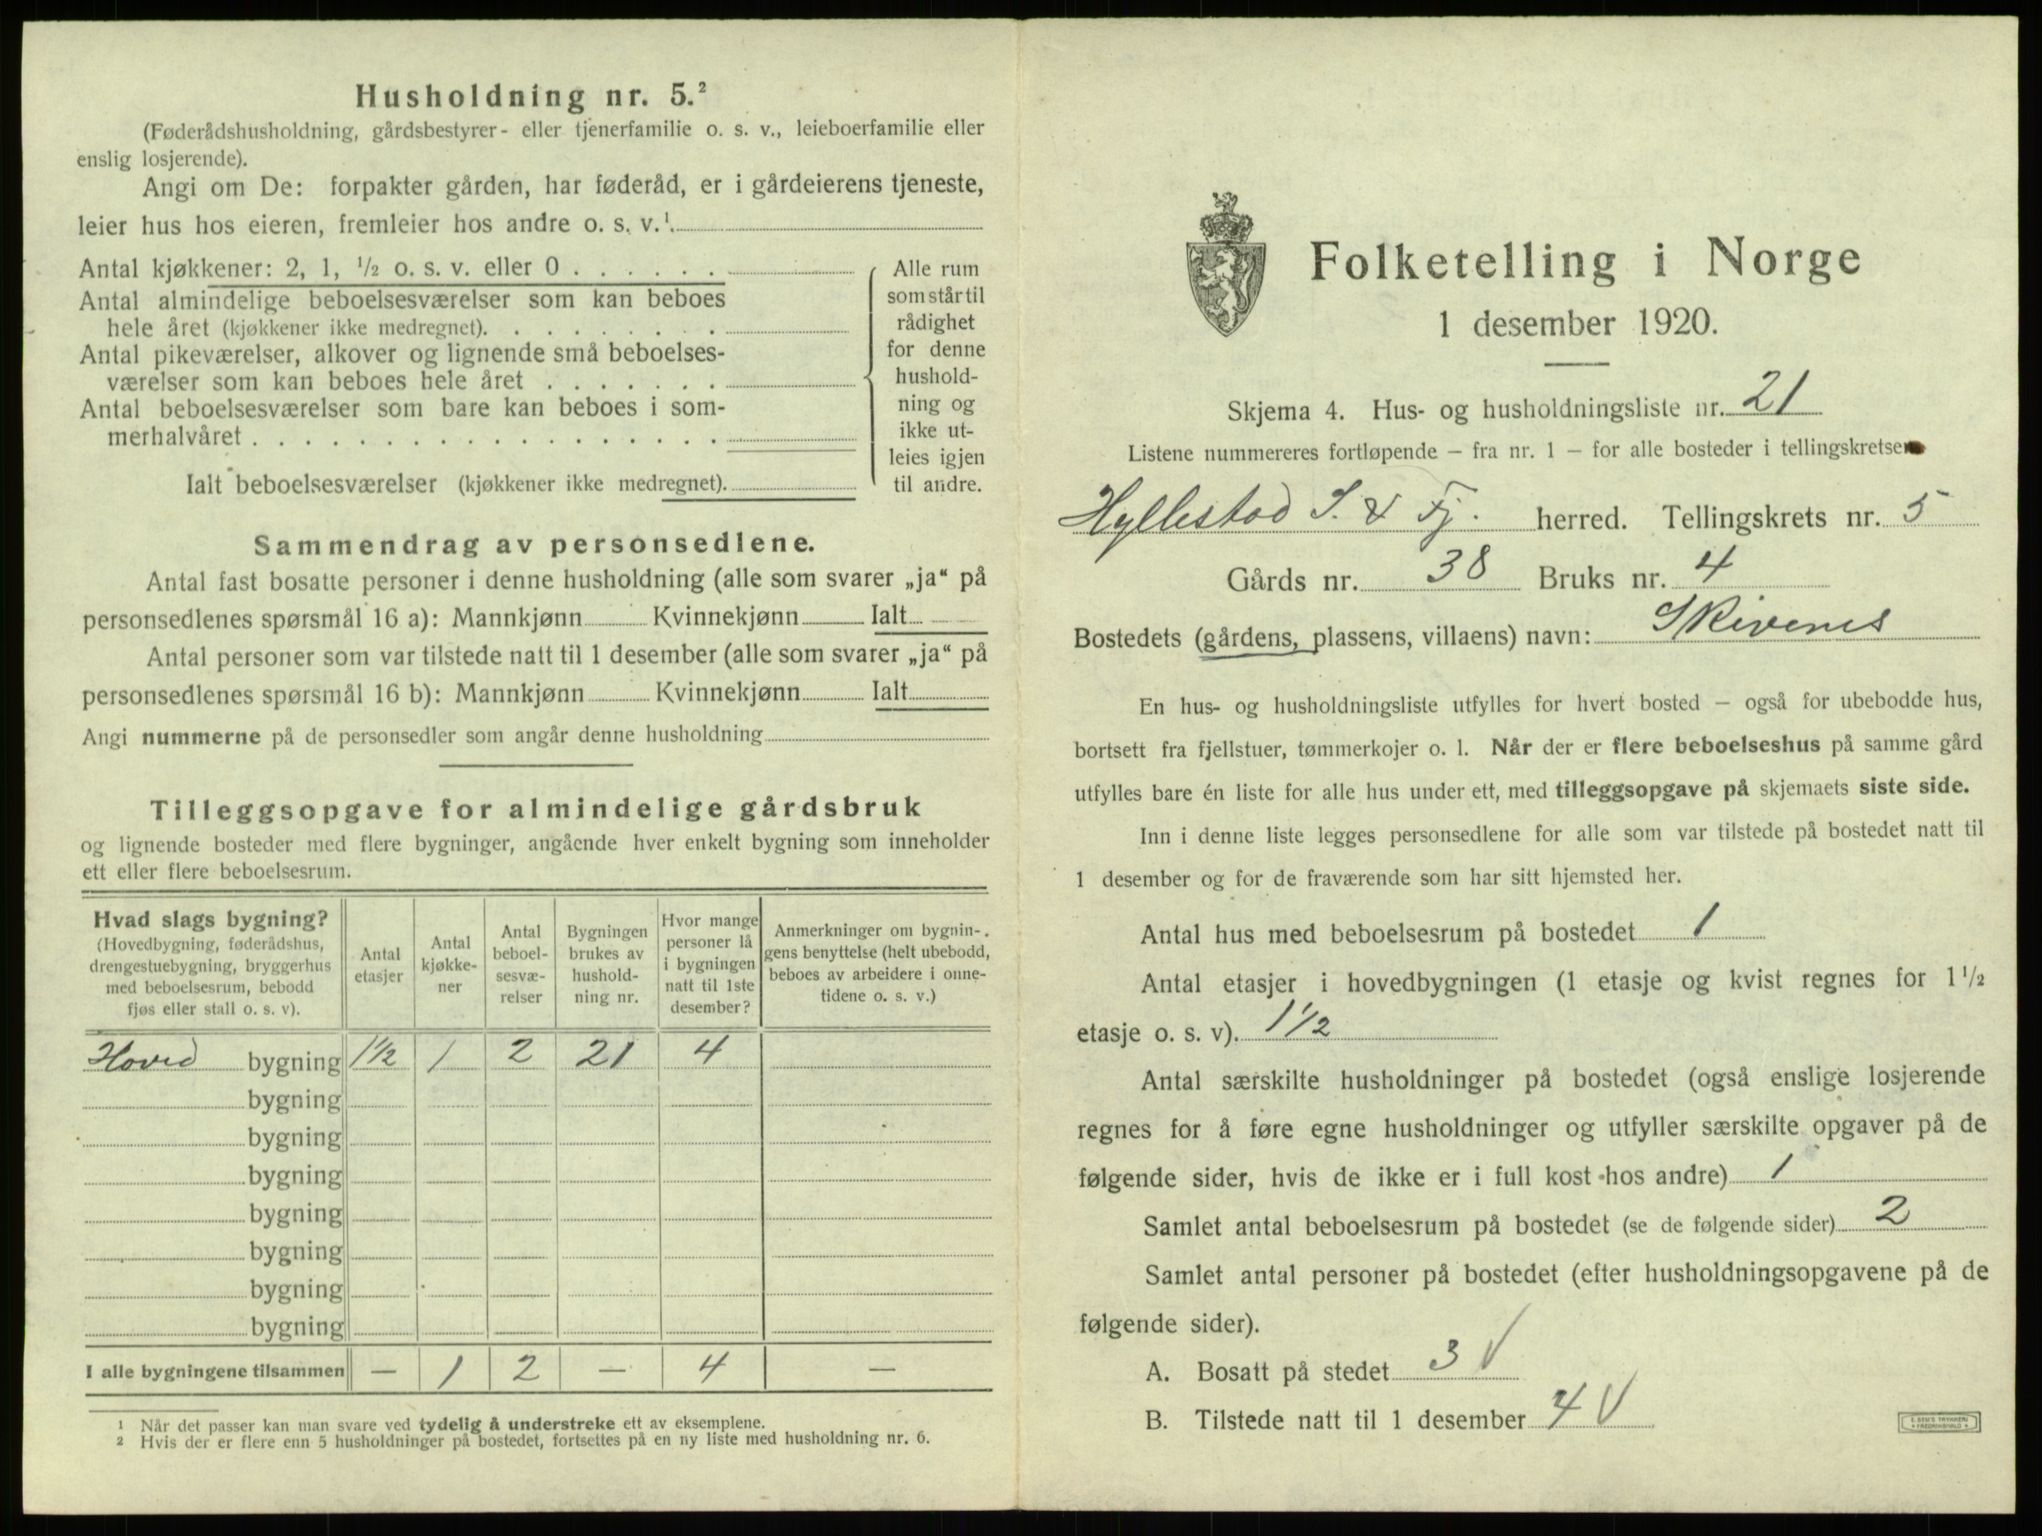 Husholdning nr. 5.²
(Føderådshusholdning, gårdsbestyrer- eller tjenerfamilie o. s. v., leieboerfamilie eller
enslig losjerende).
Angi om De: forpakter gården, har føderåd, er i gårdeierens tjeneste,
leier hus hos eieren, fremleier hos andre o. s. v.¹
Antal kjøkkener: 2, 1, ½ o. s. v. eller 0 . . . . . .
Antal almindelige beboelsesværelser som kan beboes
hele året (kjøkkener ikke medregnet). . . . . . . . .
Antal pikeværelser, alkover og lignende små beboelses-
værelser som kan beboes hele året . . . . . . .
Antal beboelsesværelser som bare kan beboes i som-
merhalvåret . . . . . . . . . . . . . . . . . .
Ialt beboelsesværelser (kjøkkener ikke medregnet).
Alle rum
som står til
rådighet
for denne
hushold-
ning og
ikke ut-
leies igjen
til andre.
Sammendrag av personsedlene.
Antal fast bosatte personer i denne husholdning (alle som svarer „ja“ på
personsedlenes spørsmål 16 a): Mannkjønn Kvinnekjønn Ialt
Antal personer som var tilstede natt til 1 desember (alle som svarer „ja“ på
personsedlenes spørsmål 16 b): Mannkjønn Kvinnekjønn Ialt
Angi nummerne på de personsedler som angår denne husholdning
Tilleggsopgave for almindelige gårdsbruk
og lignende bosteder med flere bygninger, angående hver enkelt bygning som inneholder
ett eller flere beboelsesrum.
Hvad slags bygning?
(Hovedbygning, føderådshus,
drengestuebygning, bryggerhus
med beboelsesrum, bebodd
fjøs eller stall o. s. v).
Antal
etasjer
Antal
kjøkke-
ner
Antal
beboel-
sesvæ-
relser
Bygningen
brukes av
hushold-
ning nr.
Hvor mange
personer lå
i bygningen
natt til 1ste
desember?
Anmerkninger om bygnin-
gens benyttelse (helt ubebodd,
beboes av arbeidere i onne-
tidene o. s. v.)
Hoved bygning 1½ 1 2 21 4
bygning
bygning
bygning
bygning
bygning
bygning
bygning
I alle bygningene tilsammen — 1 2 — 4 —
¹ Når det passer kan man svare ved tydelig å understreke ett av eksemplene.
² Hvis der er flere enn 5 husholdninger på bostedet, fortsettes på en ny liste med husholdning nr. 6.
Folketelling i Norge
1 desember 1920.
Skjema 4. Hus- og husholdningsliste nr. 21
Listene nummereres fortløpende – fra nr. 1 – for alle bosteder i tellingskretsen
Hyllestad S. & Fj. herred. Tellingskrets nr. 5
Gårds nr. 38 Bruks nr. 4
Bostedets (gårdens, plassens, villaens) navn: Skivenes
En hus- og husholdningsliste utfylles for hvert bosted – også for ubebodde hus,
bortsett fra fjellstuer, tømmerkojer o. l. Når der er flere beboelseshus på samme gård
utfylles bare én liste for alle hus under ett, med tilleggsopgave på skjemaets siste side.
Inn i denne liste legges personsedlene for alle som var tilstede på bostedet natt til
1 desember og for de fraværende som har sitt hjemsted her.
Antal hus med beboelsesrum på bostedet 1
Antal etasjer i hovedbygningen (1 etasje og kvist regnes for 1 ½
etasje o. s. v). 1½
Antal særskilte husholdninger på bostedet (også enslige losjerende
regnes for å føre egne husholdninger og utfyller særskilte opgaver på de
følgende sider, hvis de ikke er i full kost hos andre) 1
Samlet antal beboelsesrum på bostedet (se de følgende sider) 2
Samlet antal personer på bostedet (efter husholdningsopgavene på de
følgende sider).
A. Bosatt på stedet 3 V
B. Tilstede natt til 1 desember 4 V
E. SEM'S TRYKKERI
FREDRIKSHALD